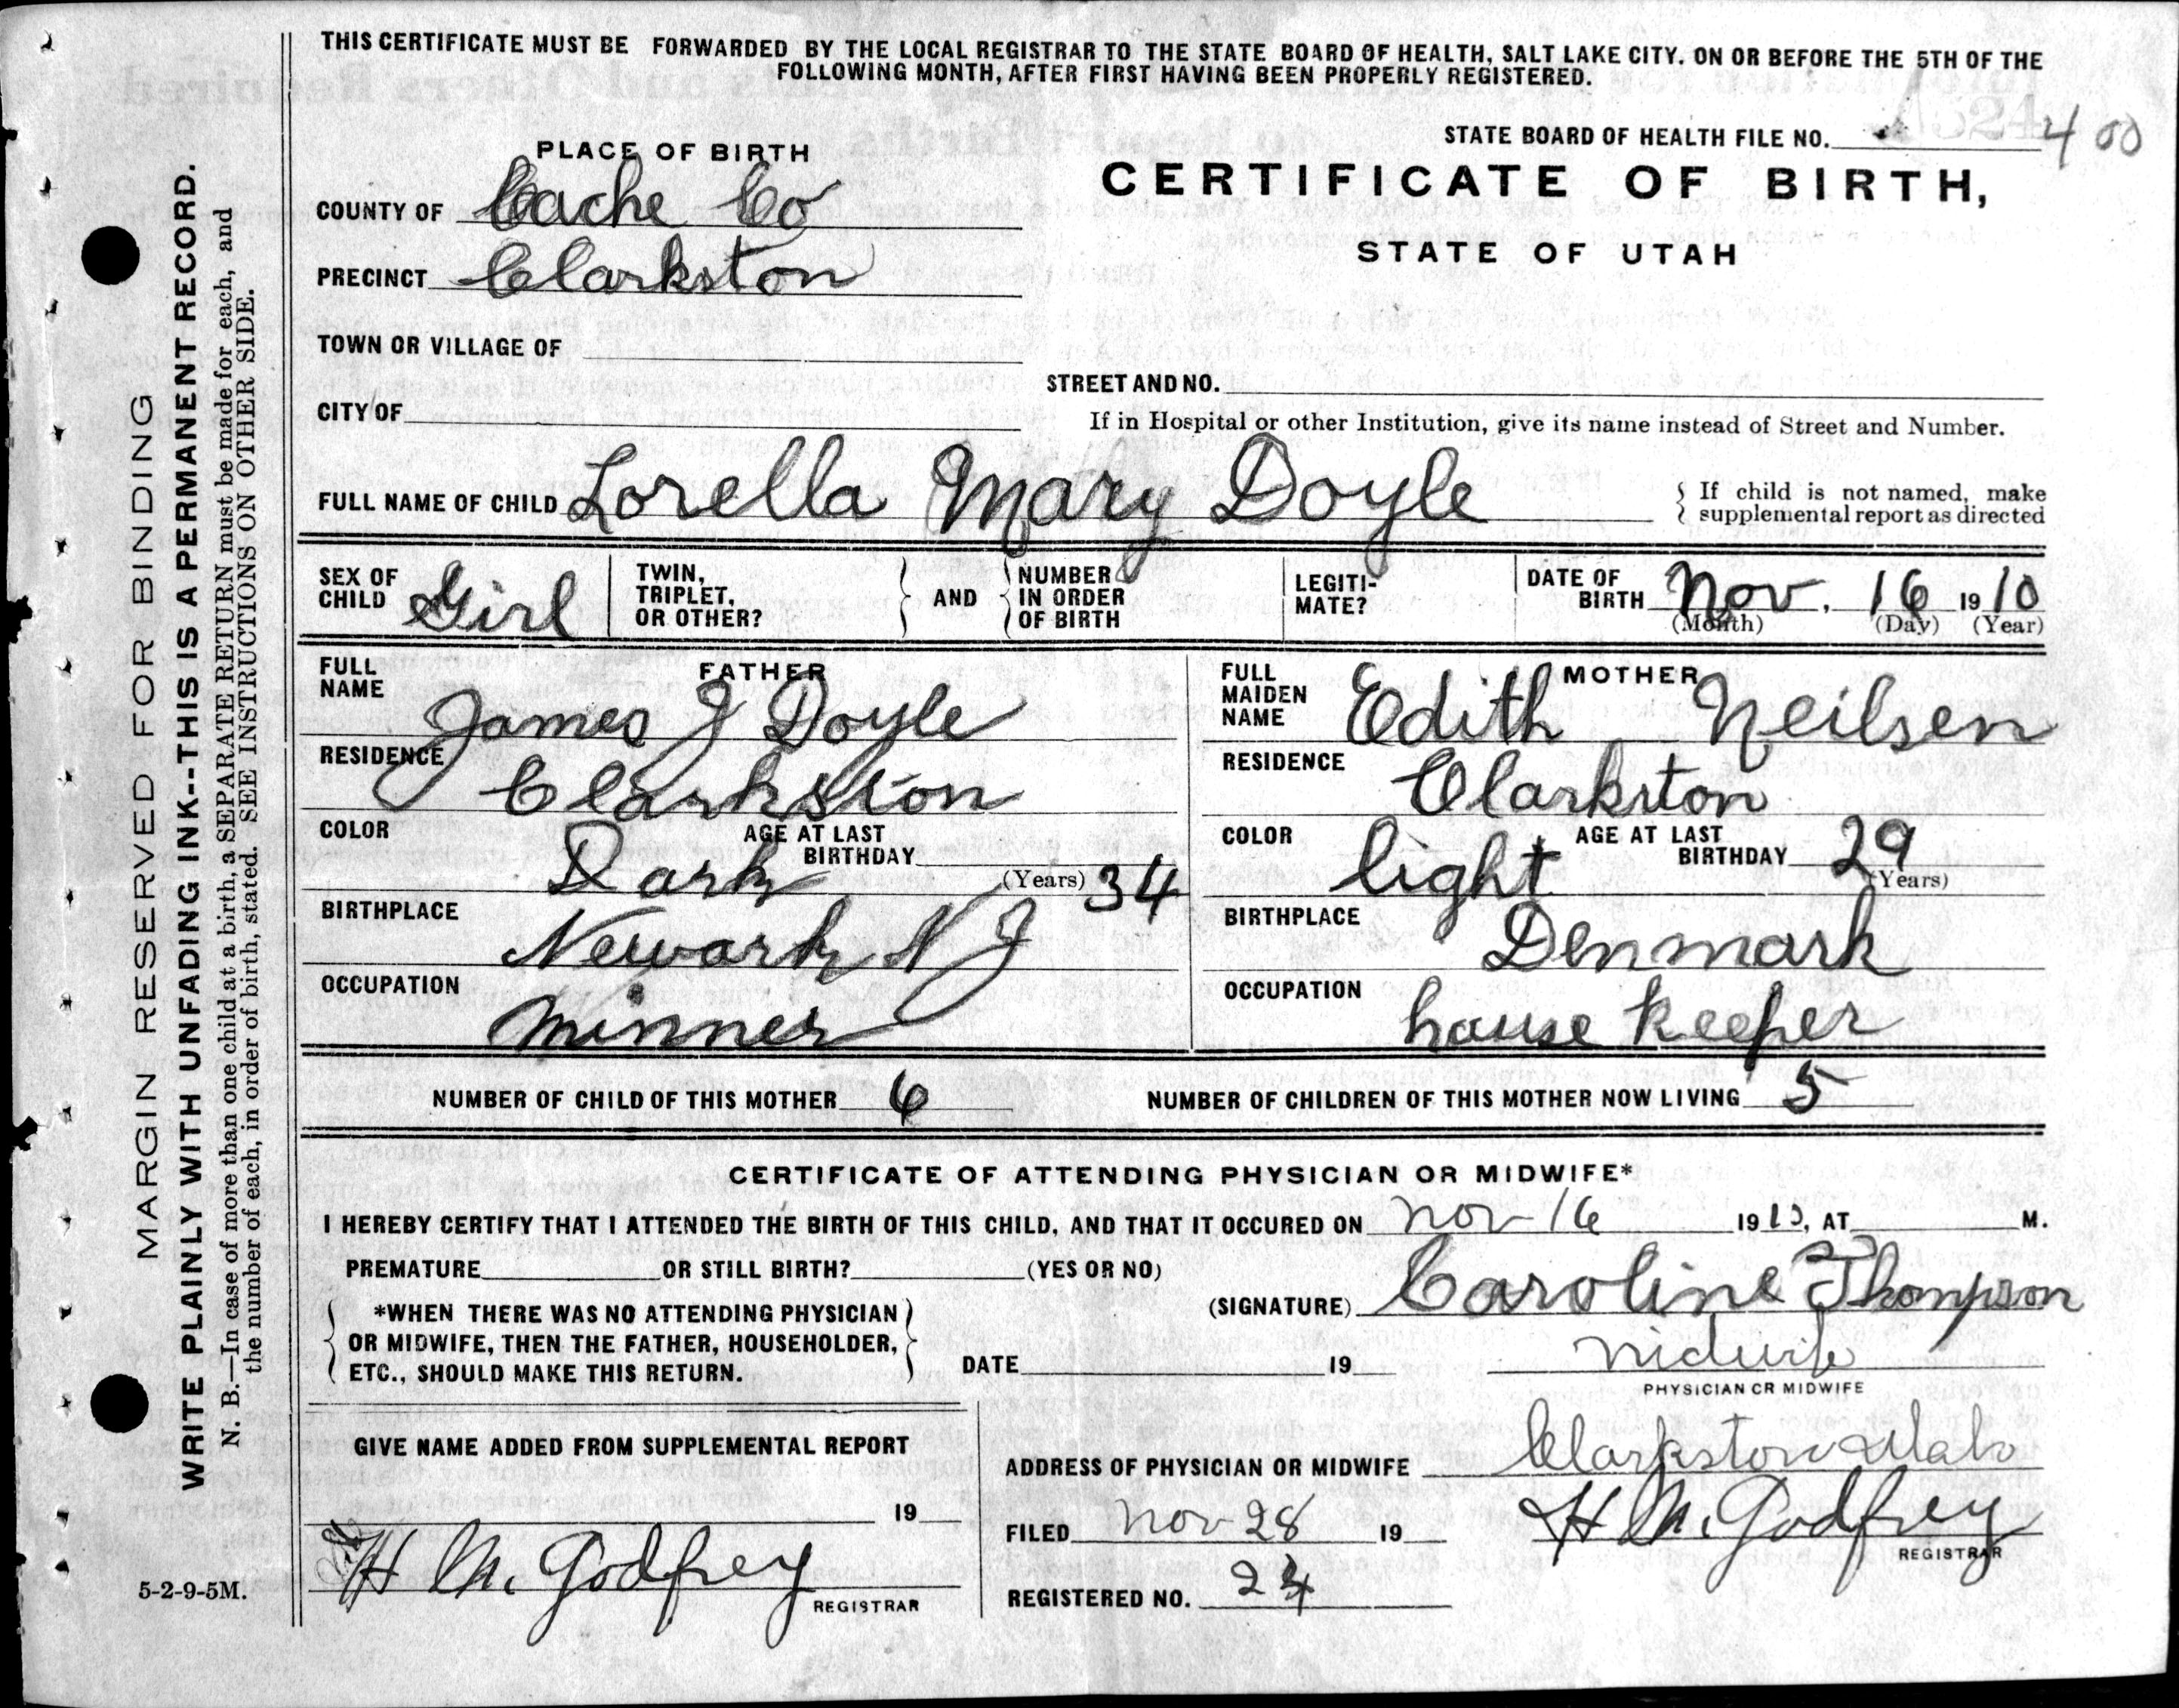 THIS CERTIFICATE MUST BE FORWARDED BY THE LOCAL REGISTRAR TO THE STATE BOARD OF HEALTH, SALT LAKE CITY, ON OR BEFORE THE 5TH OF THE
FOLLOWING MONTH, AFTER FIRST HAVING BEEN PROPERLY REGISTERED.
STATE BOARD OF HEALTH FILE NO. 400
PLACE OF BIRTH
CERTIFICATE OF BIRTH,
COUNTY OF Cache Co
STATE OF UTAH
PRECINCT Clarkston
TOWN OR VILLAGE OF
STREET AND NO.
CITY OF
If in Hospital or other Institution, give its name instead of Street and Number.
FULL NAME OF CHILD Lorella Mary Doyle
If child is not named, make
supplemental report as directed
SEX OF
CHILD Girl
TWIN,
TRIPLET,
OR OTHER?
AND
NUMBER
IN ORDER
OF BIRTH
LEGITI-
MATE?
DATE OF
BIRTH Nov. 16 1910
(Month) (Day) (Year)
FATHER
FULL
NAME
James J Doyle
RESIDENCE
Clarkston
COLOR
Dark
AGE AT LAST
BIRTHDAY
(Years) 34
BIRTHPLACE
Newark N J
OCCUPATION
Minner
MOTHER
FULL
MAIDEN
NAME
Edith Neilsen
RESIDENCE
Clarkston
COLOR
light
AGE AT LAST
BIRTHDAY 29
(Years)
BIRTHPLACE
Denmark
OCCUPATION
house keeper
NUMBER OF CHILD OF THIS MOTHER 6
NUMBER OF CHILDREN OF THIS MOTHER NOW LIVING 5
CERTIFICATE OF ATTENDING PHYSICIAN OR MIDWIFE*
I HEREBY CERTIFY THAT I ATTENDED THE BIRTH OF THIS CHILD, AND THAT IT OCCURED ON Nov 16 1910, AT M.
PREMATURE OR STILL BIRTH? (YES OR NO)
*WHEN THERE WAS NO ATTENDING PHYSICIAN
OR MIDWIFE, THEN THE FATHER, HOUSEHOLDER,
ETC., SHOULD MAKE THIS RETURN.
(SIGNATURE) Caroline Thompson
DATE 19
Midwife
PHYSICIAN OR MIDWIFE
GIVE NAME ADDED FROM SUPPLEMENTAL REPORT
19
H M. Godfrey
REGISTRAR
ADDRESS OF PHYSICIAN OR MIDWIFE Clarkston Utah
FILED Nov 28 19
H M. Godfrey
REGISTRAR
REGISTERED NO. 24
5-2-9-5M.
MARGIN RESERVED FOR BINDING
WRITE PLAINLY WITH UNFADING INK--THIS IS A PERMANENT RECORD.
N. B.—In case of more than one child at a birth, a SEPARATE RETURN must be made for each, and
the number of each, in order of birth, stated. SEE INSTRUCTIONS ON OTHER SIDE.